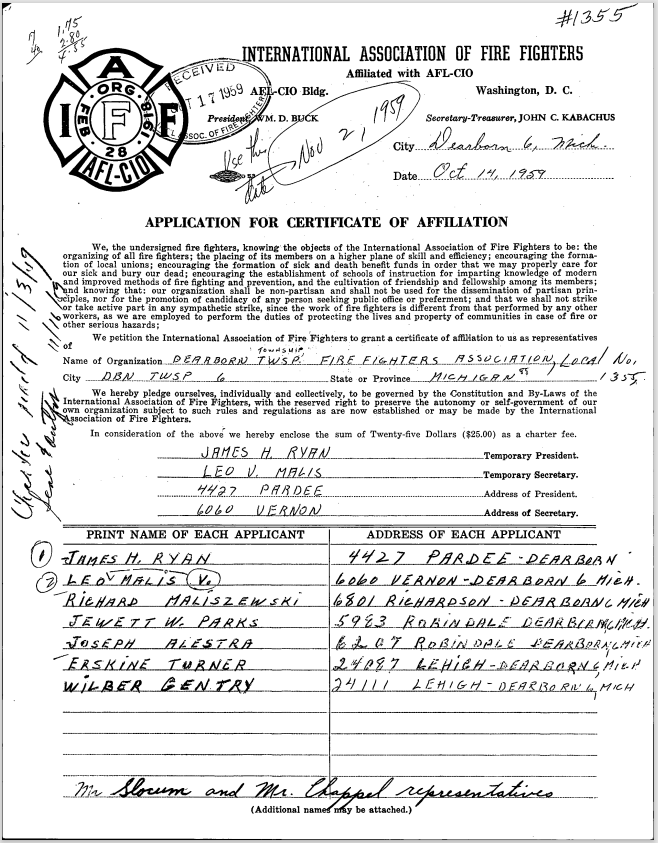 #1355
1.75
2.80
4.55
INTERNATIONAL ASSOCIATION OF FIRE FIGHTERS
Affiliated with AFL-CIO
I A F F
ORG.
FEB. 28 1918
AFL-CIO
RECEIVED
OCT 17 1959
ASSOC. OF FIRE FIGHTERS
AFL-CIO Bldg. Washington, D. C.
President, WM. D. BUCK Secretary-Treasurer, JOHN C. KABACHUS
Use this date
Nov 21, 1959
City Dearborn 6, Mich.
Date Oct 14, 1959
APPLICATION FOR CERTIFICATE OF AFFILIATION
We, the undersigned fire fighters, knowing the objects of the International Association of Fire Fighters to be: the
organizing of all fire fighters; the placing of its members on a higher plane of skill and efficiency; encouraging the forma-
tion of local unions; encouraging the formation of sick and death benefit funds in order that we may properly care for
our sick and bury our dead; encouraging the establishment of schools of instruction for imparting knowledge of modern
and improved methods of fire fighting and prevention, and the cultivation of friendship and fellowship among its members;
and knowing that: our organization shall be non-partisan and shall not be used for the dissemination of partisan prin-
ciples, nor for the promotion of candidacy of any person seeking public office or preferment; and that we shall not strike
or take active part in any sympathetic strike, since the work of fire fighters is different from that performed by any other
workers, as we are employed to perform the duties of protecting the lives and property of communities in case of fire or
other serious hazards;
We petition the International Association of Fire Fighters to grant a certificate of affiliation to us as representatives
of
TOWNSHIP
Name of Organization DEARBORN TWSP. FIRE FIGHTERS ASSOCIATION, LOCAL No.
City DBN TWSP 6 State or Province MICHIGAN 1355,
We hereby pledge ourselves, individually and collectively, to be governed by the Constitution and By-Laws of the
International Association of Fire Fighters, with the reserved right to preserve the autonomy or self-government of our
own organization subject to such rules and regulations as are now established or may be made by the International
Association of Fire Fighters.
In consideration of the above we hereby enclose the sum of Twenty-five Dollars ($25.00) as a charter fee.
JAMES H. RYAN Temporary President.
LEO V. MALIS Temporary Secretary.
4427 PARDEE Address of President.
6060 VERNON Address of Secretary.
PRINT NAME OF EACH APPLICANT ADDRESS OF EACH APPLICANT
1 JAMES H. RYAN 4427 PARDEE - DEARBORN
2 LEO MALIS V. 6060 VERNON - DEARBORN 6 MICH.
RICHARD MALISZEWSKI 6801 RICHARDSON - DEARBORN 6 MICH
JEWETT W. PARKS 5983 ROBINDALE DEARBORN 6, MICH.
JOSEPH ALESTRA 6207 ROBINDALE DEARBORN 6 MICH
ERSKINE TURNER 24087 LEHIGH - DEARBORN 6, MICH
WILBER GENTRY 24111 LEHIGH - DEARBORN 6, MICH
Mr Slocum and Mr. Chappel representatives
(Additional names may be attached.)